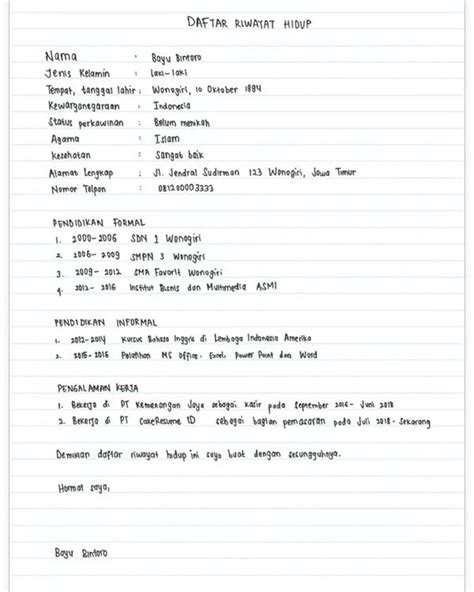 DAFTAR RIWAYAT HIDUP
Nama : Bayu Bintoro
Jenis Kelamin : Laki-laki
Tempat, tanggal lahir : Wonogiri, 10 Oktober 1994
Kewarganegaraan : Indonesia
Status perkawinan : Belum menikah
Agama : Islam
Kesehatan : Sangat baik
Alamat Lengkap : Jl. Jendral Sudirman 123 Wonogiri, Jawa Timur
Nomor Telpon : 081200003333
PENDIDIKAN FORMAL
1. 2000-2006 SDN 1 Wonogiri
2. 2006-2009 SMPN 3 Wonogiri
3. 2009-2012 SMA Favorit Wonogiri
4. 2012-2016 Institut Bisnis dan Multimedia ASMI
PENDIDIKAN INFORMAL
1. 2012-2014 Kursus Bahasa Inggris di Lembaga Indonesia Amerika
2. 2015-2016 Pelatihan MS Office: Excel, Power Point dan Word
PENGALAMAN KERJA
1. Bekerja di PT Kemenangan Jaya sebagai kasir pada September 2016- Juni 2018
2. Bekerja di PT CakeResume ID sebagai bagian pemasaran pada Juli 2018- Sekarang
Demikian daftar riwayat hidup ini saya buat dengan sesungguhnya.
Hormat saya,
Bayu Bintoro